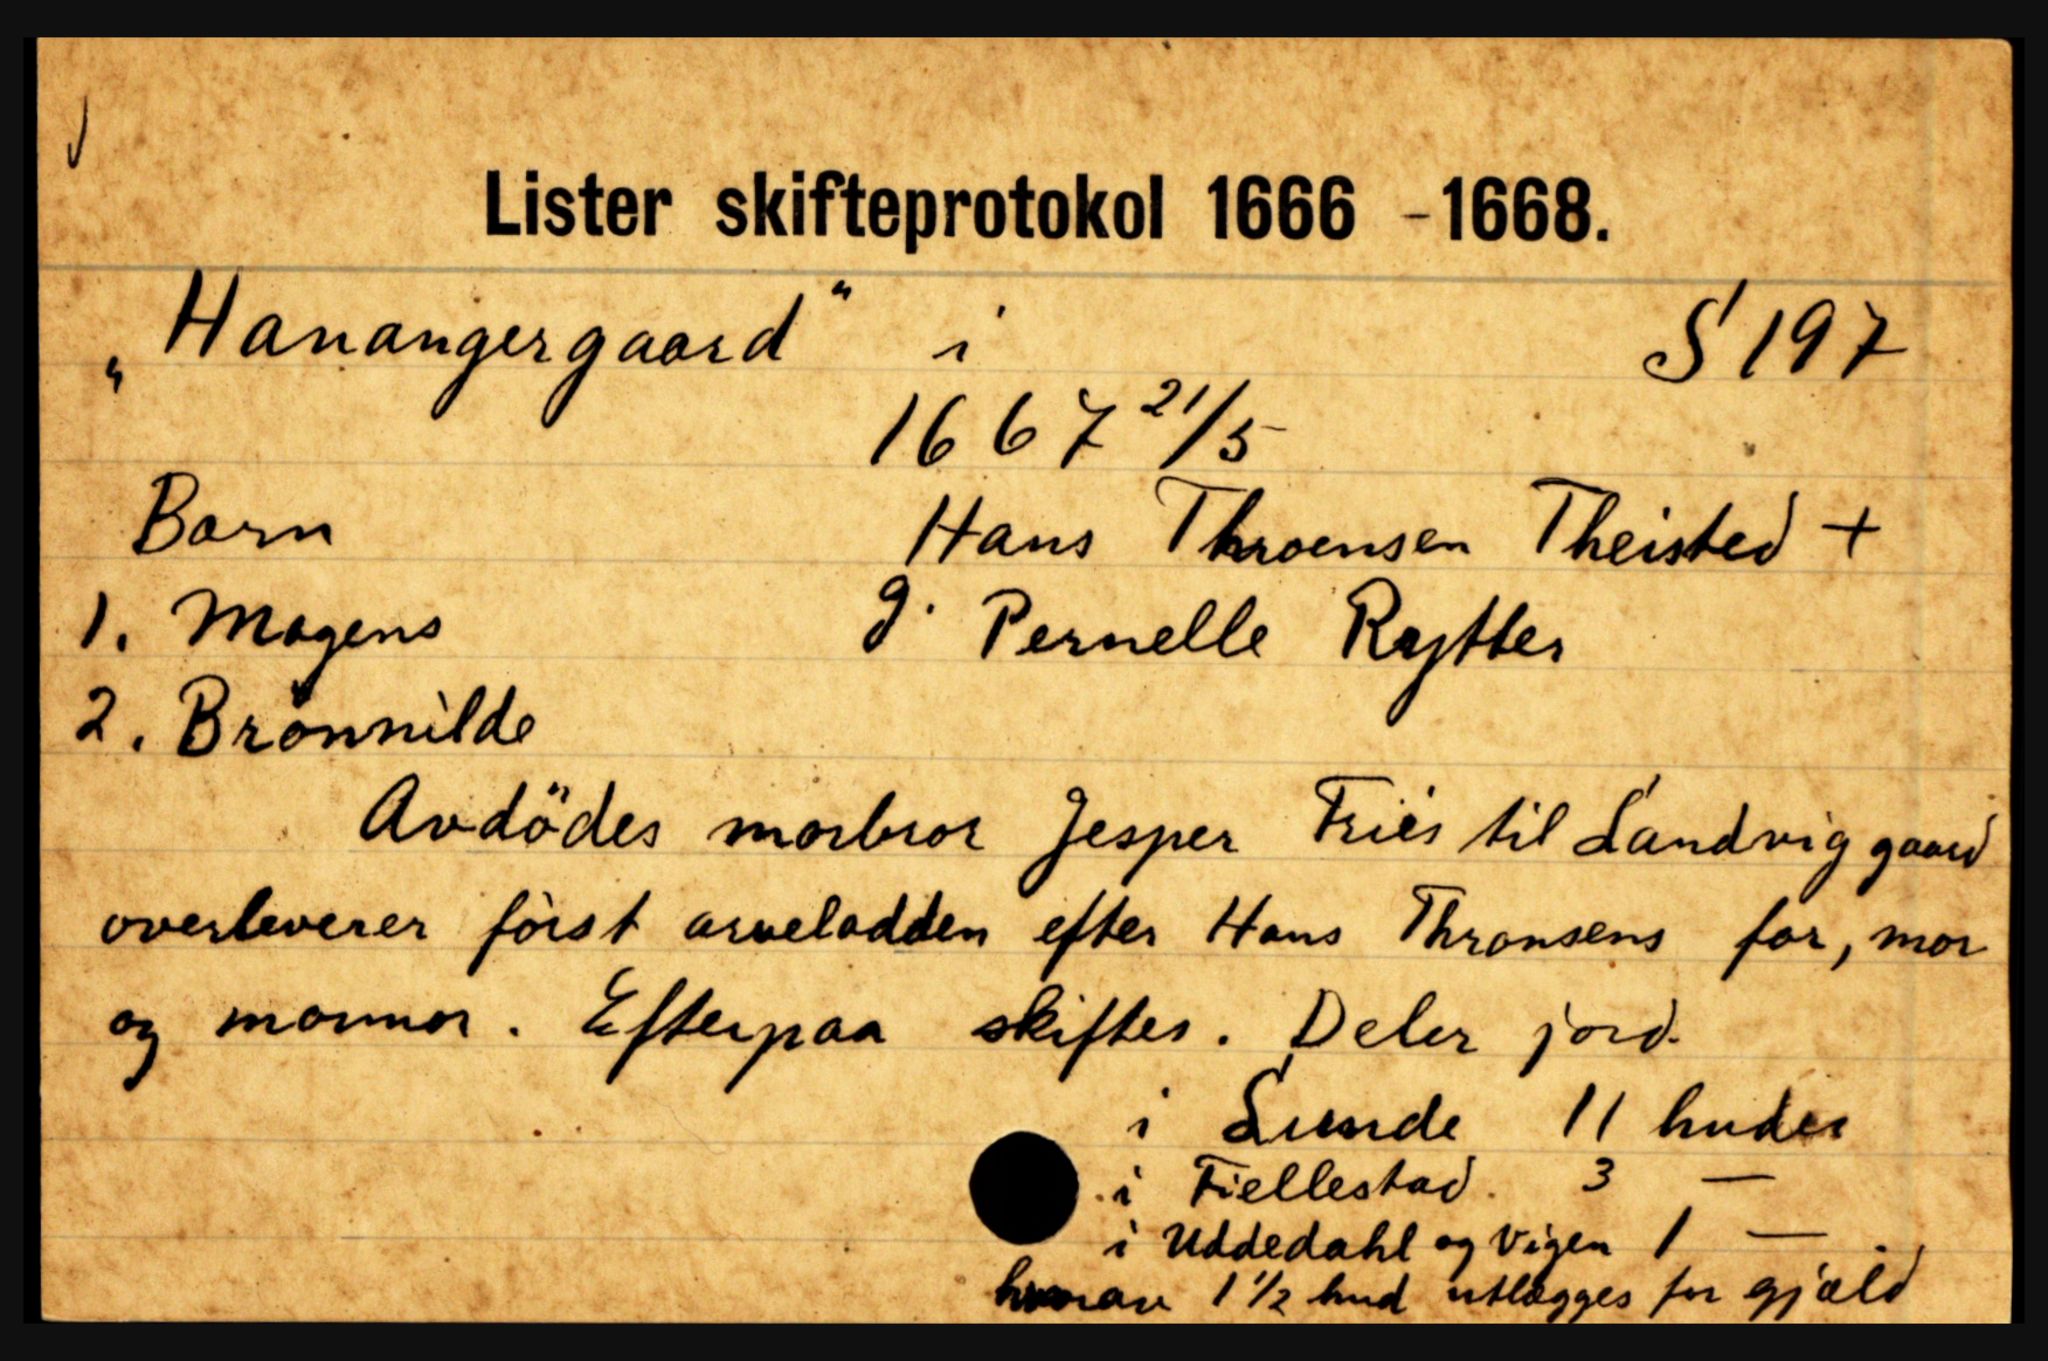 Lister skifteprotokol 1666 - 1668.
„Hanangergaard“ i S 197
1667 21/5
Barn Hans Throensen Theisted +
1. Mogens g. Pernelle Rytter
2. Brönnilde
Avdödes morbror Jesper Friis til Sandviggaard
overleverer först arvelodden efter Hans Thronsens far, mor
og mormor. Efterpaa skiftes. Deler jord.
i Lunde 11 huder
i Fiellestad. 3 —
i Uddedahl og Vigen 1 —
hvorav 1 1/2 hud utlægges for gjæld